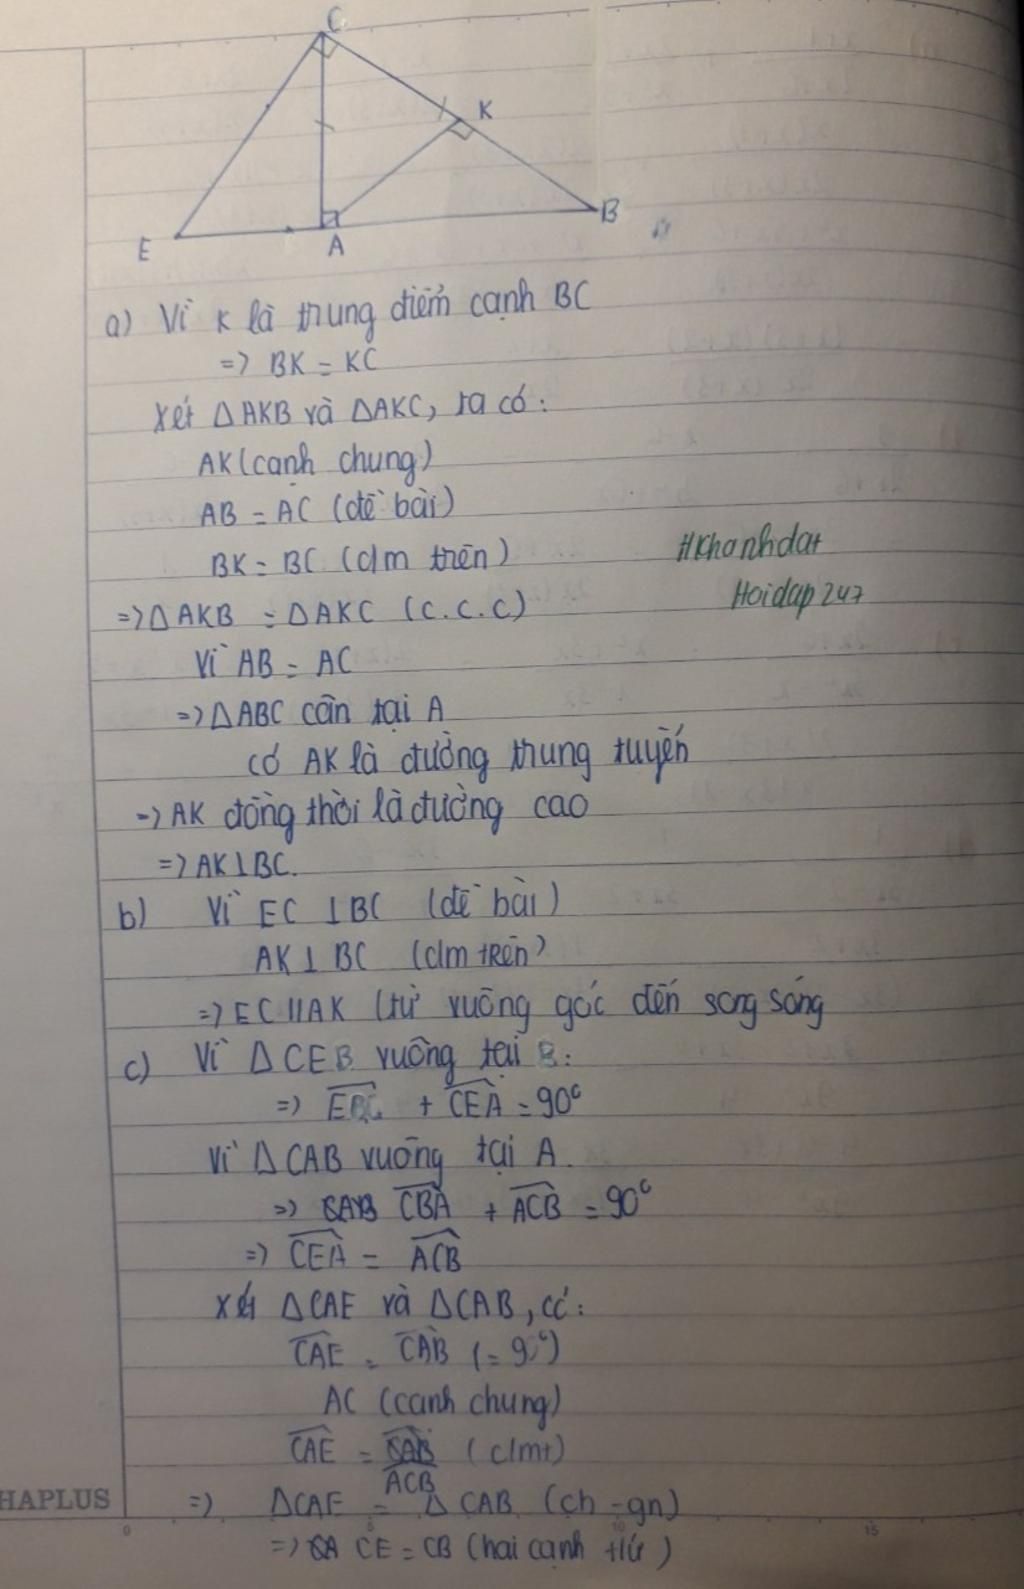 C
K
B
E
A
a) Vì K là trung điểm cạnh BC
=> BK = KC
Xét ΔAKB và ΔAKC, ta có:
AK (cạnh chung)
AB = AC (đề bài)
BK = BC (clm trên)
#Khanhdat
Hoidap247
=> ΔAKB = ΔAKC (c.c.c)
Vì AB = AC
=> ΔABC cân tại A
có AK là đường trung tuyến
=> AK đồng thời là đường cao
=> AK ⊥ BC.
b) Vì EC ⊥ BC (đề bài)
AK ⊥ BC (clm trên)
=> EC // AK (từ vuông góc đến song song
c) Vì ΔCEB vuông tại :
=> + CEA = 90°
Vì ΔCAB vuông tại A.
=> CBA + ACB = 90°
=> CEA = ACB
Xét ΔCAE và ΔCAB, có:
CAE = CAB (= 90°)
AC (cạnh chung)
CAE = (clmt)
ACB
=> ΔCAE = ΔCAB (ch - gn)
=> CE = CB (hai cạnh tứ)
HAPLUS
0 5 10 15